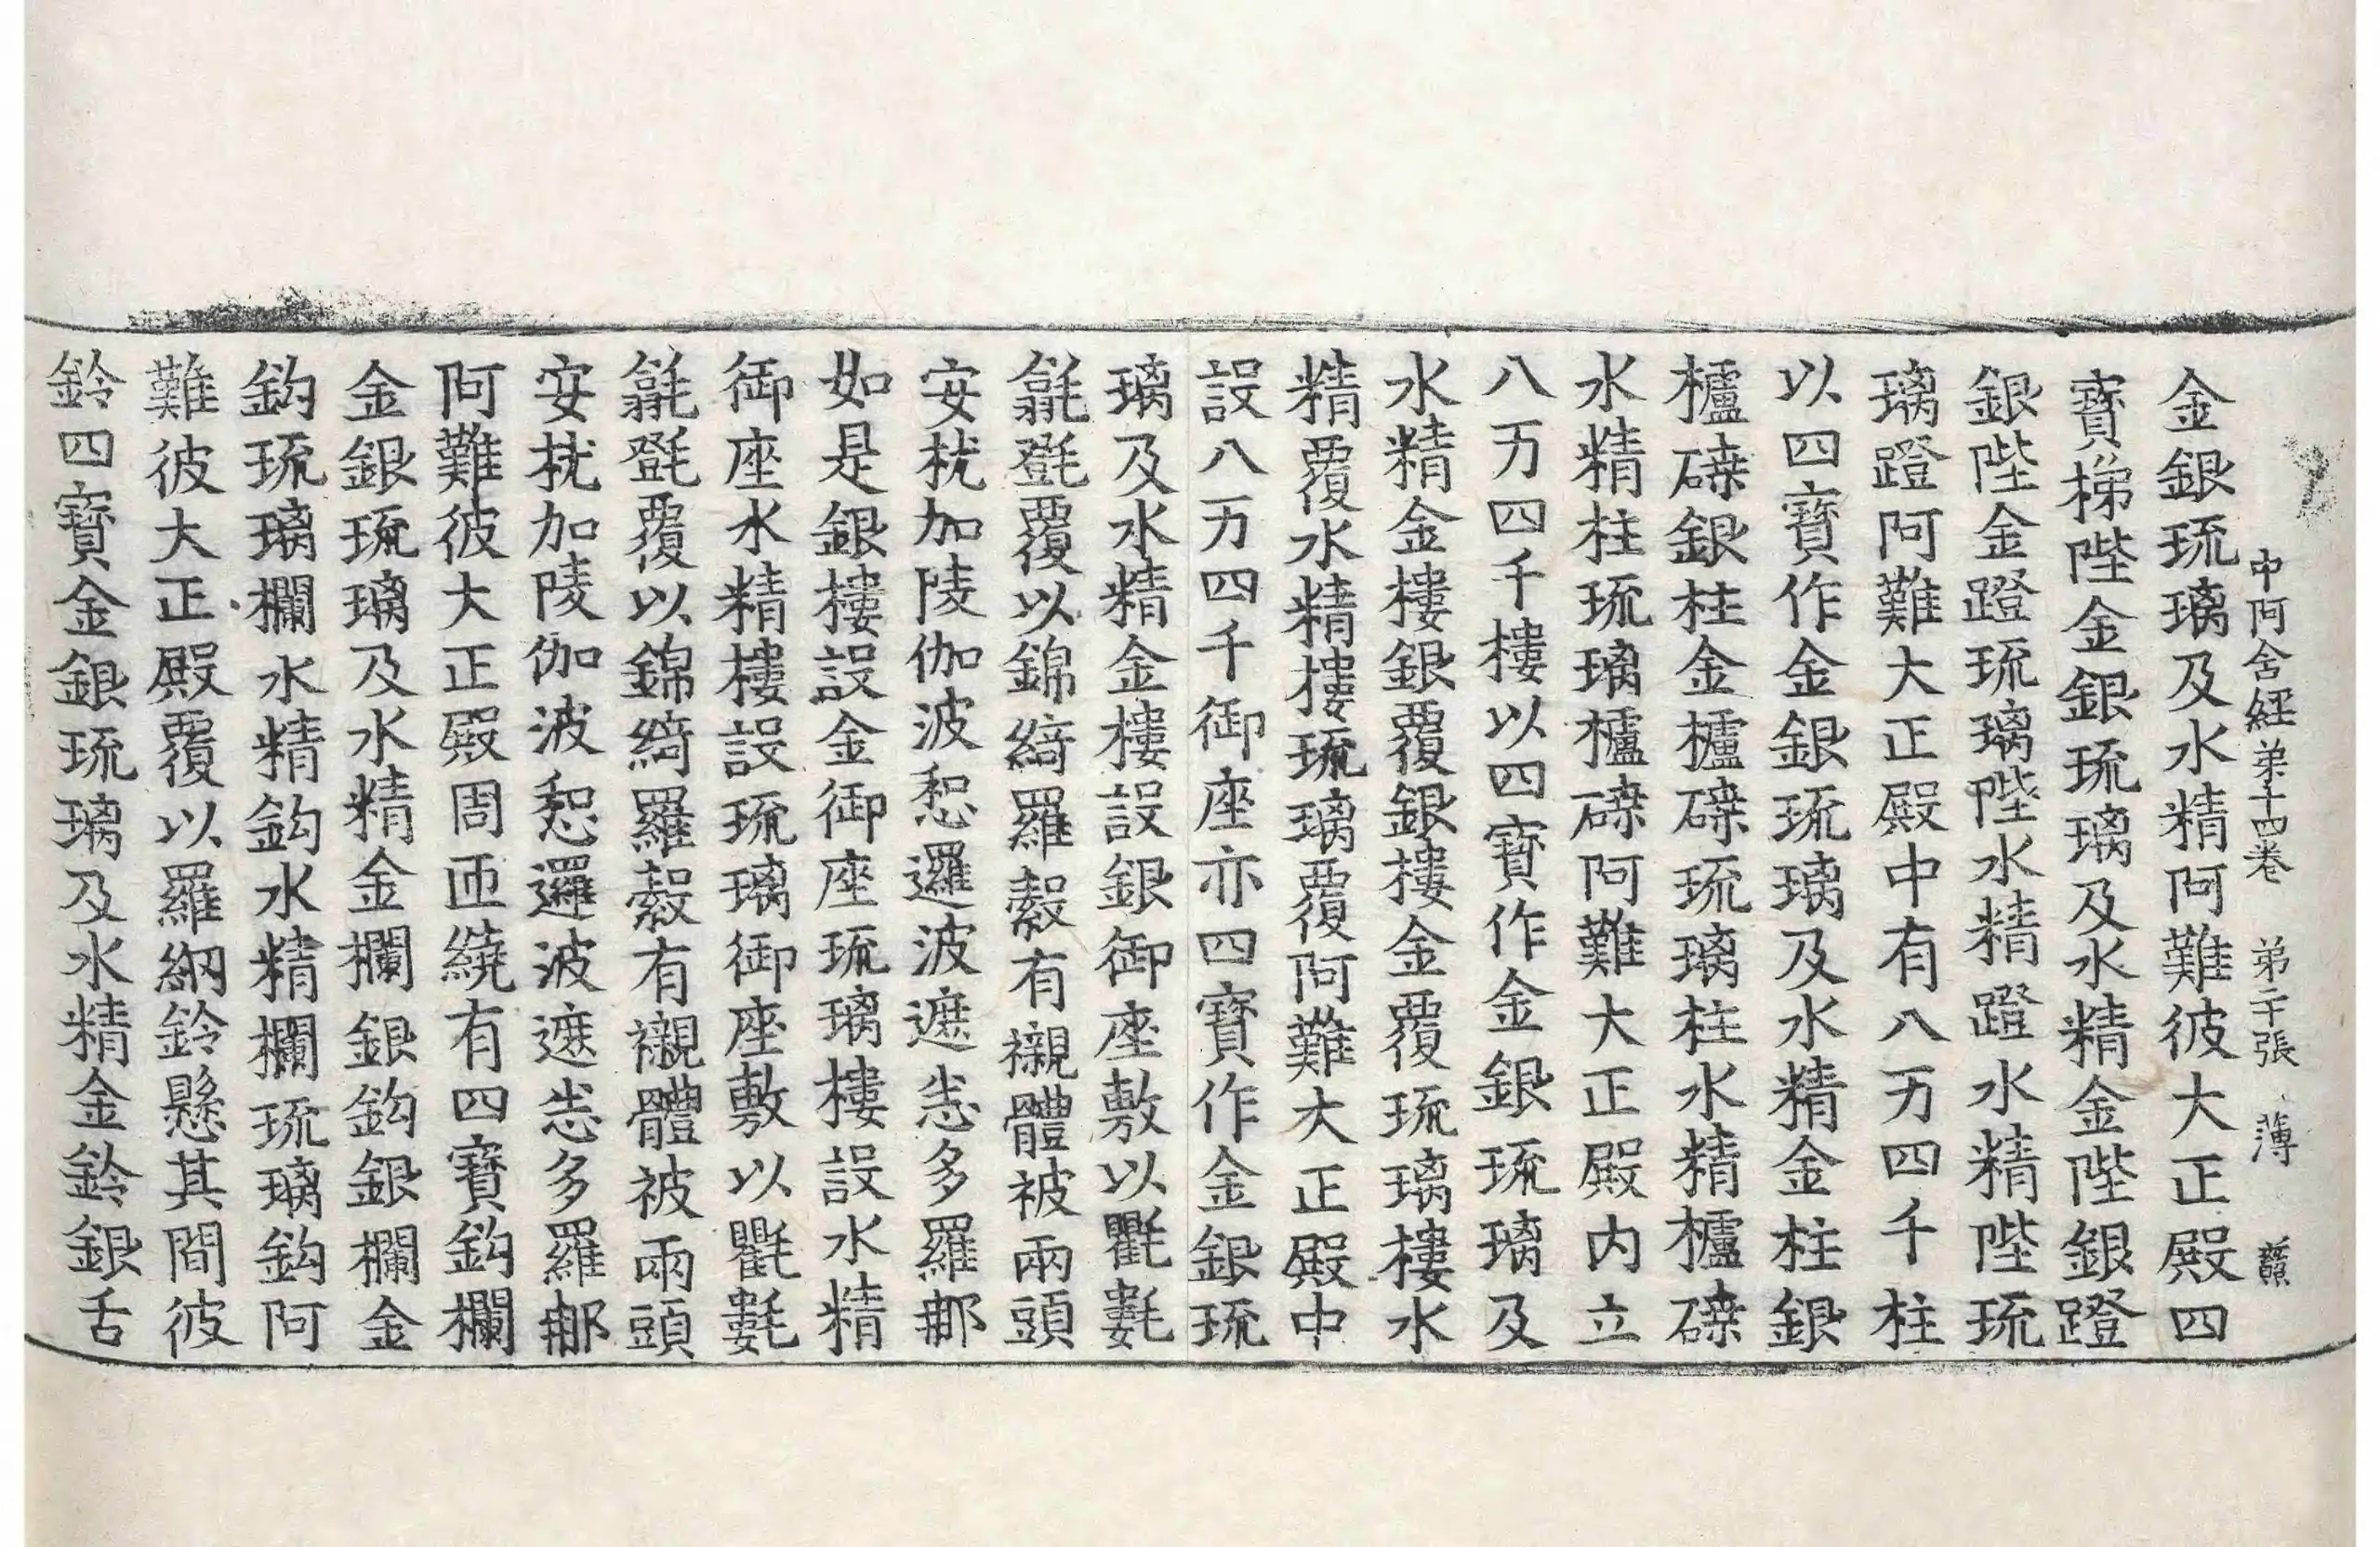 中阿含經第十四卷 第二十張 薄
金銀琉璃及水精阿難彼大正殿四
寶梯陛金銀琉璃及水精金陛銀蹬
銀陛金蹬琉璃陛水精蹬水精陛琉
璃蹬阿難大正殿中有八万四千柱
以四寶作金銀琉璃及水精金柱銀
櫨磉銀柱金櫨磉琉璃柱水精櫨磉
水精柱琉璃櫨磉阿難大正殿内立
八万四千樓以四寶作金銀琉璃及
水精金樓銀覆銀樓金覆琉璃樓水
精覆水精樓琉璃覆阿難大正殿中
設八万四千御座亦四寶作金銀琉
璃及水精金樓設銀御座敷以氍氀
毾㲪覆以錦綺羅縠有襯體被兩頭
安枕加陵伽波惒邏波遮悉多羅那
如是銀樓設金御座琉璃樓設水精
御座水精樓設琉璃御座敷以氍氀
毾㲪覆以錦綺羅縠有襯體被兩頭
安枕加陵伽波惒邏波遮悉多羅那
阿難彼大正殿周匝繞有四寶鈎欄
金銀琉璃及水精金欄銀鈎銀欄金
鈎琉璃欄水精鈎水精欄琉璃鈎阿
難彼大正殿覆以羅網鈴懸其間彼
鈴四寶金銀琉璃及水精金鈴銀舌